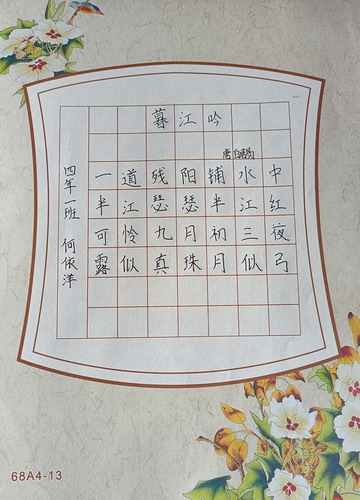 暮江吟
唐白居易
一道残阳铺水中
半江瑟瑟半江红
可怜九月初三夜
露似真珠月似弓
四年一班 何依洋
68A4-13